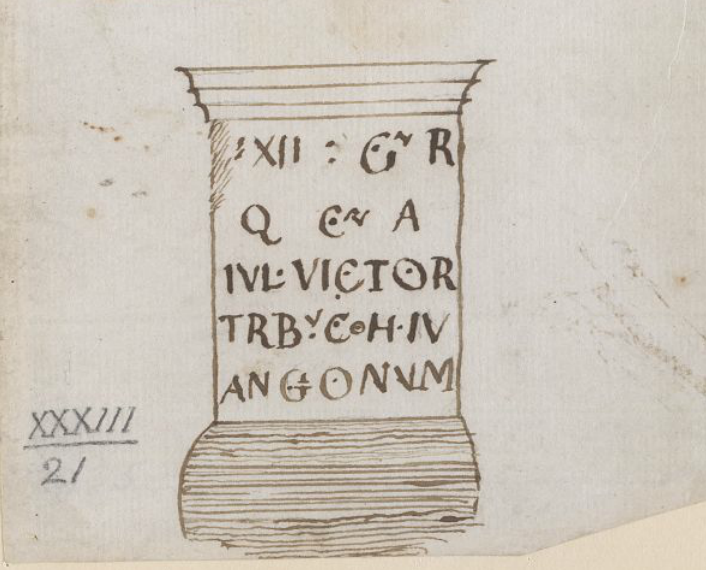 :XII : G~ R
Q G~ A
IVL·VICTOR
TRB·COH·IV
ANGONVM
XXXIII
21